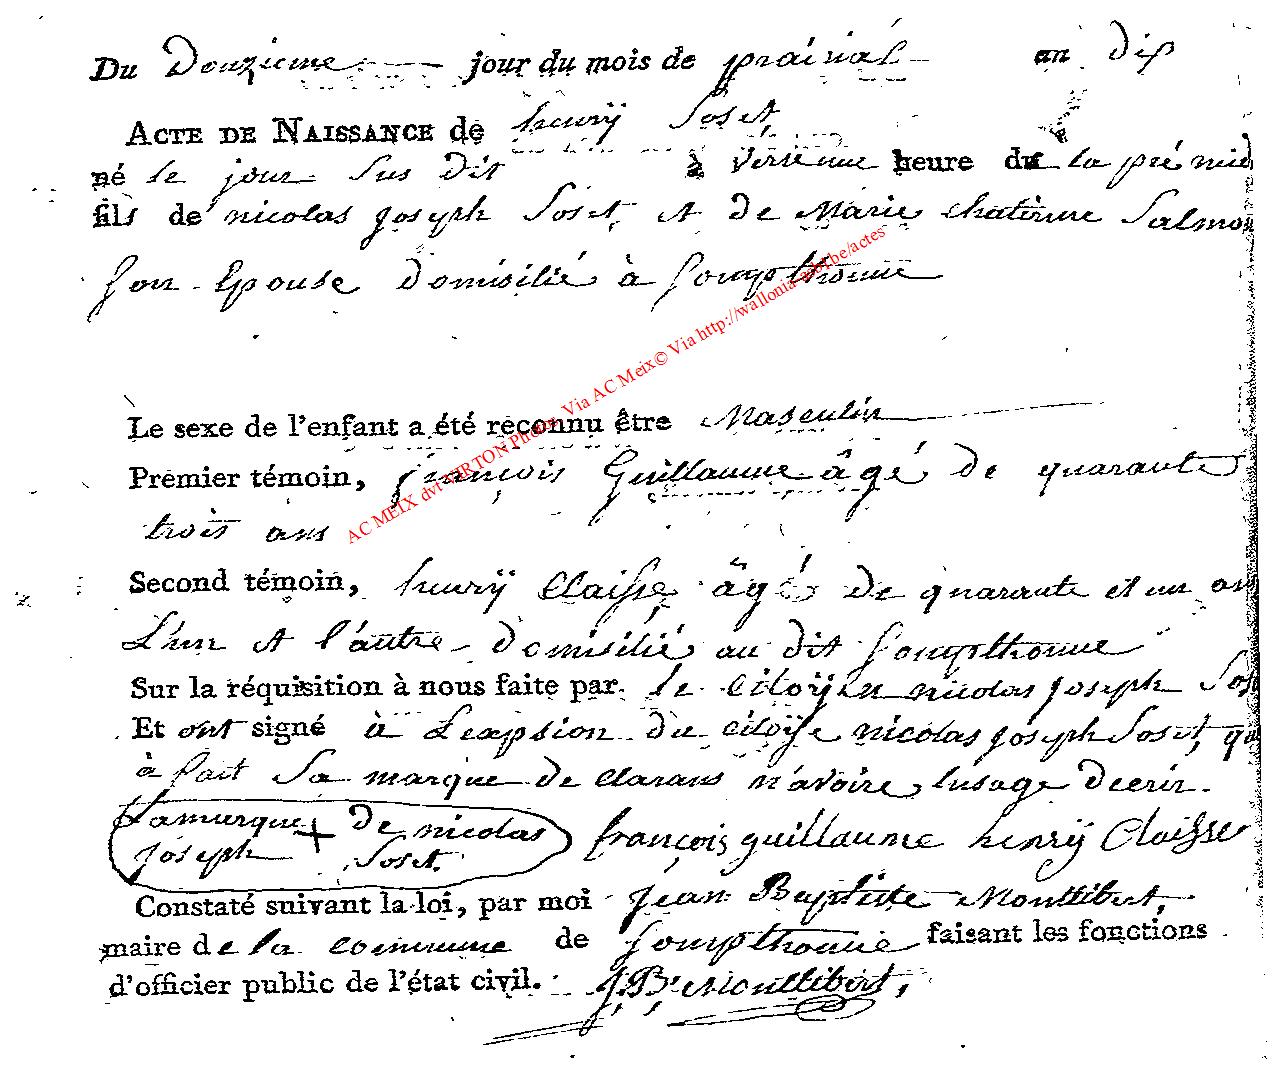 Du Douzieme jour du mois de prairial an dix
ACTE DE NAISSANCE de henrÿ Soset
né le jour sus dit à heure du la prémié
fils de nicolas joseph Soset, et de Marie Chaterinne Salmo
Son Epouse domisilié à Sompthonne
Le sexe de l'enfant a été reconnu être Masculin
Premier témoin, françois Guillaume âgé de quarante
trois ans
Second témoin, henrÿ Claisse, âgé de quarante et un an
L'un et l'autre domisilié au dit Sompthonne
Sur la réquisition à nous faite par le Citoÿen nicolas joseph Sos
Et ont signé à Lexpsion du citoÿe nicolas joseph Soset, qu
à fait Sa marque de clarans n'avoire lusage decrir.
Lamarque + de nicolas
joseph Soset.
françois guillaume henrÿ Claisse
Constaté suivant la loi, par moi jean Baptiste Monttibert,
maire de la commune de Sompthonne faisant les fonctions
d'officier public de l'état civil. J. B. Monttibert,
AC MEIX dvt VIRTON Photos Via AC Meix© Via http://wallonia-asbl.be/actes